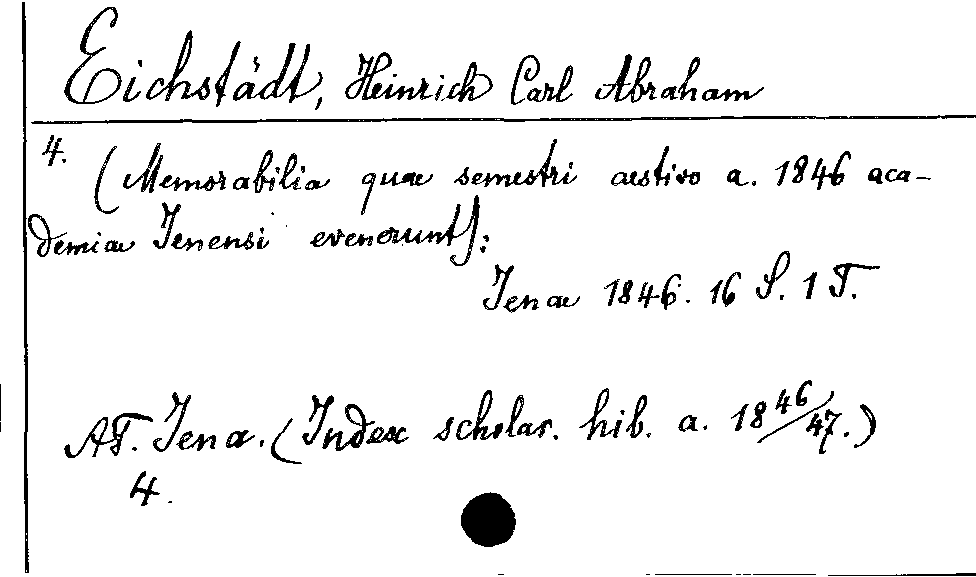 Eichstädt, Heinrich Carl Abraham
4.
(Memorabilia quae semestri aestivo a. 1846 aca-
demiae Jenensi evenerunt):
Jenae 1846. 16 S. 1 T.
AT. Jena. (Index scholar. hib. a. 1846/47.)
4.